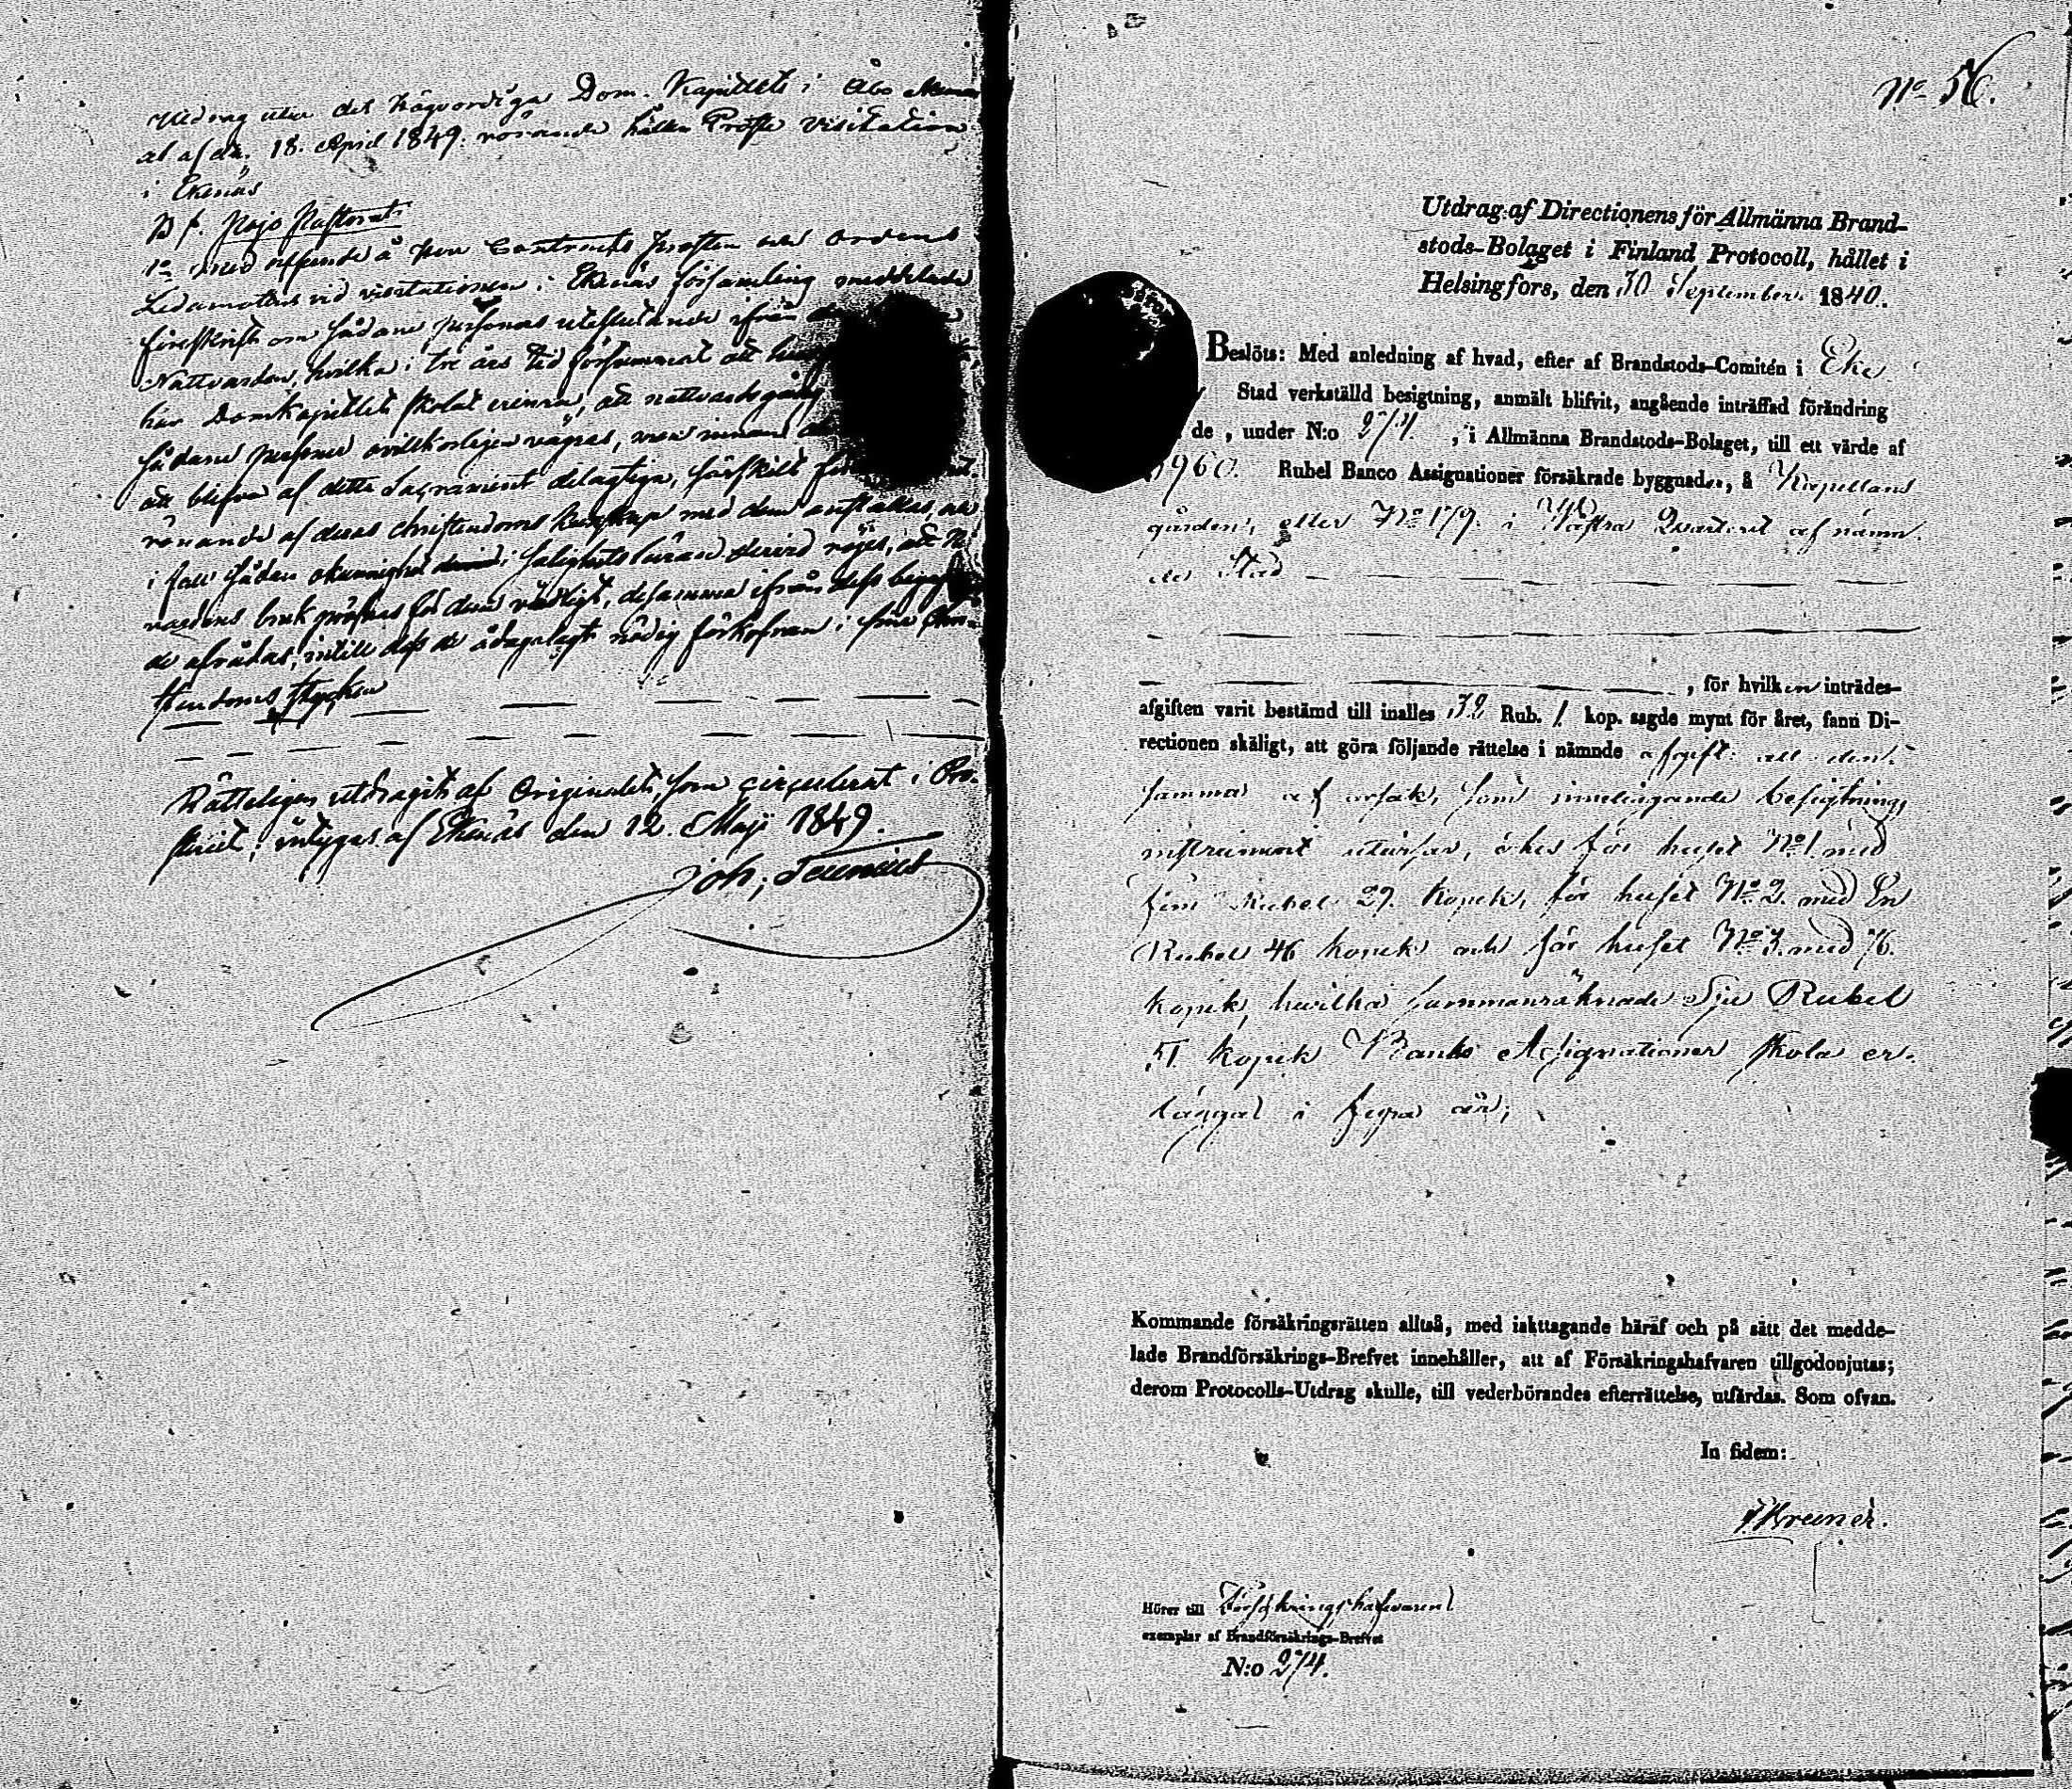 Utdrag utur det Högvördiga Dom-Kapitlets i Åbo
af den 18. April 1849. rörande hållen Prosts Visitation
i Ekenäs
Pojo Pastorat
1o med afseende å Herr Contracts Prosten och Ordens
Ledamotens vid visitationen i Ekenäs församling meddelade
föreskrift om sådane personers uteslutande ifrån
Nattvarden, hvilka i tre års tid försummat att
har Domkapitlet skolat erinra, att nattvardsgång
sådane personer ovillkorligen vägras, men innan
att blifva af detta Sacrament delagtiga, särskilt
rönande af deras christendoms kunskap med dem anställas, och
i fall sådan okunnighet i salighetsläran dervid röjes, att
vardens bruk pröfvas för dem vådligt, desamma ifrån dess
de afrådas, intill dess de ådagalagt nödig förkofran i sine Chri-
stendoms stycken
Rätteligen utdragit af Originalet, som circulerat i Pro-
steriet, intygas af Ekenäs den 12 Maji 1849.
Joh;
No 56.
Utdrag af Directionens för Allmänna Brand-
stods-Bolaget i Finland Protocoll, hållet i
Helsingfors, den 30 September 1840.
Beslöts: Med anledning af hvad, efter af Brandstods-Comitén i Eke
Stad verkställd besigtning, anmält blifvit, angående inträffad förändring
de, under N:o 274, i Allmänna Brandstods-Bolaget, till ett värde af
960. Rubel Banco Assignationer försäkrade byggnader, å Kapellans
gården, eller No 179. i Westra Quarteret af nämn-
de Stad
, för hvilken inträdes-
afgiften varit bestämd till inalles 32 Rub. 1. kop. sagde mynt för året, fann Di-
rectionen skäligt, att göra följande rättelse i nämnde afgift: att den-
samma af orsak, som inneliggande besigtnings
instrument utvisar, ökes för huset No 1. med
fem Rubel 29. Kopek, för huset No 2. med En
Rubel 46 kopek och för huset No 3. med 76.
kopek, hwilka sammanräknade Sju Rubel
51. kopek Banko Assignationer skola er-
läggas i fyra år;
Kommande försäkringsrätten alltså, med iakttagande häraf och på sätt det medde-
lade Brandförsäkrings-Brefvet innehåller, att af Försäkringshafvaren tillgodonjutas;
derom Protocolls-Utdrag skulle, till vederbörandes efterrättelse, utfärdas. Som ofvan.
In fidem:
Hörer till Försäkringshafvarens
exemplar af Brandförsäkrings-Brefvet
N:o 274.